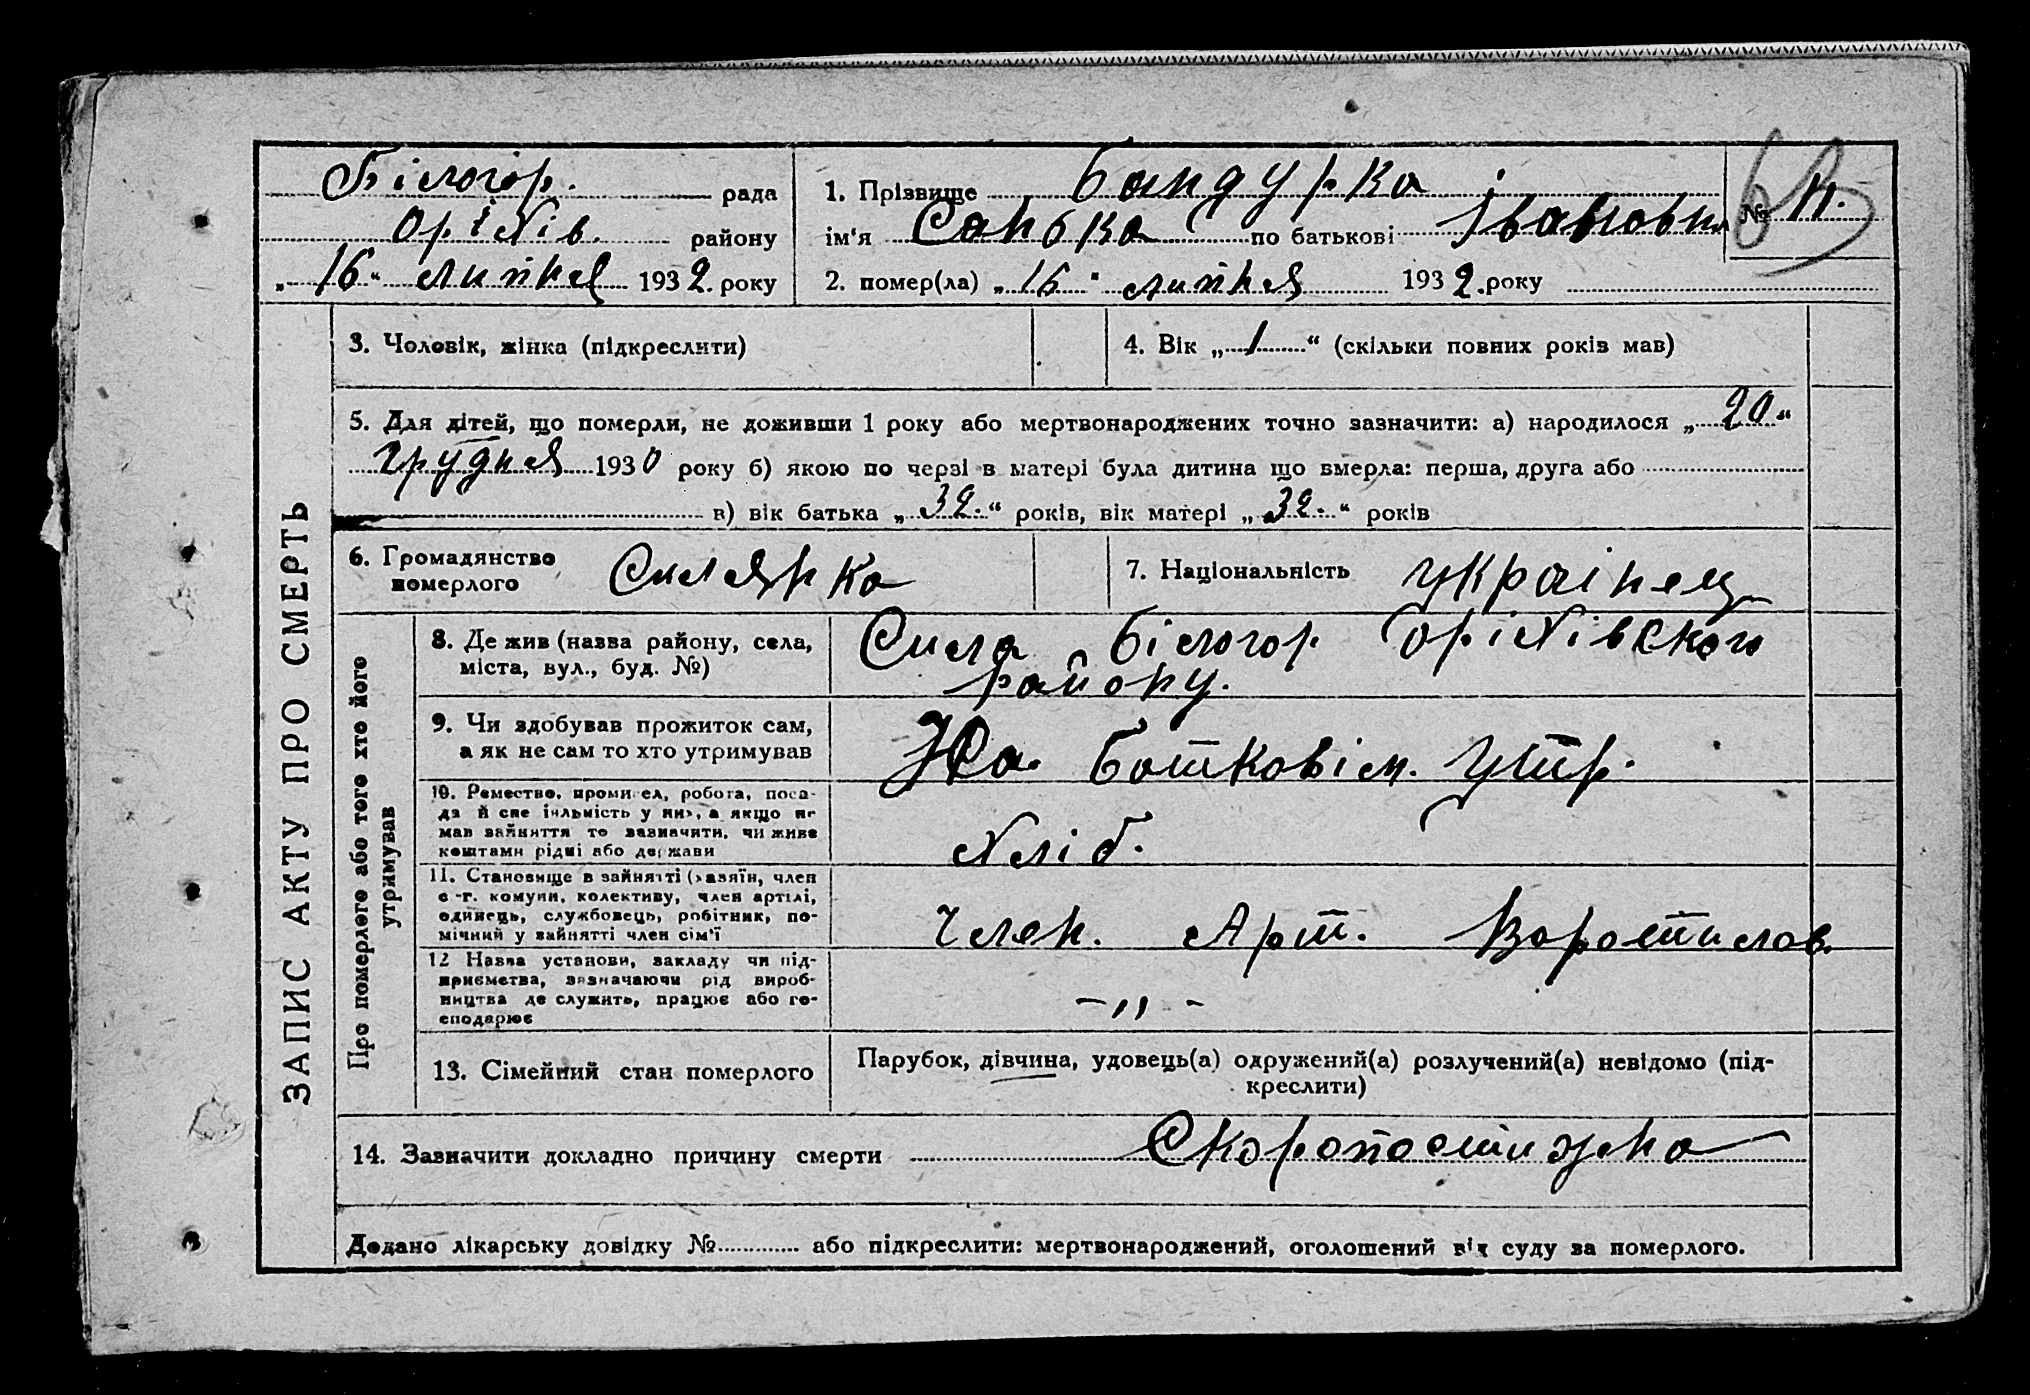 Білогір. рада
Оріхів. району
„16“ липня 1932. року
1. Прізвище Бандурка
ім'я Санька по батькові Івановна
2. помер(ла) „16“ липня 1932. року
№ 11.
ЗАПИС АКТУ ПРО СМЕРТЬ
3. Чоловік, жінка (підкреслити)
4. Вік „1“ (скільки повних років мав)
5. Для дітей, що померли, не доживши 1 року або мертвонароджених точно зазначити: а) народилося „20“
грудня 1930 року б) якою по черзі в матері була дитина що вмерла: перша, друга або
в) вік батька „32.“ років, вік матері „32.“ років
6. Громадянство
померлого
Силянка
7. Національність
українец
Про померлего або того хто його
утримував
8. Де жив (назва району, села,
міста, вул., буд. №)
Сила Білогор Оріхівского
району.
9. Чи здобував прожиток сам,
а як не сам то хто утримував
На Батковім. Утр.
10. Ремество, промисел, робота, поса-
да й спеціяльність у них, а якщо не
мав зайняття то зазначити, чи живе
коштами рідні або держави
Хліб.
11. Становище в зайнятті (хазяїн, член
с-г. комуни, колективу, член артілі,
одинець, службовець, робітник, по-
мічний у зайнятті член сім'ї
Член. Арт. Воротилов.
12 Назва установи, закладу чи під-
приємства, зазначаючи рід вироб-
ництва де служить, працює або го-
сподарює
-"-
13. Сімейний стан померлого
Парубок, дівчина, удовець(а) одружений(а) розлучений(а) невідомо (під-
креслити)
14. Зазначити докладно причину смерти Скоропостижна
Додано лікарську довідку № або підкреслити: мертвонароджений, оголошений від суду за померлого.